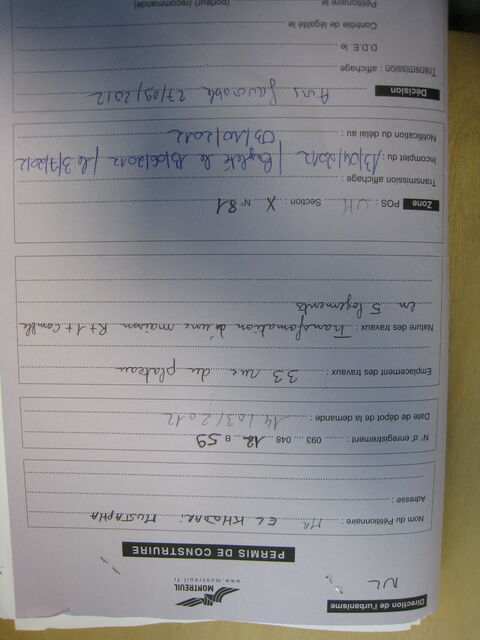 Direction de l'urbanisme
NL
MONTREUIL
www.montreuil.fr
PERMIS DE CONSTRUIRE
Nom du Pétitionnaire : Mr EL KHODARI MUSTAPHA
Adresse :
N° d'enregistrement : 093 048 12 B 59
Date de dépôt de la demande : 14/03/2012
Emplacement des travaux : 33 rue du plateau
Nature des travaux : Transformation d'une maison R+1+Comble
en 5 logements
Zone POS : UH Section : X N° 81
Transmission affichage :
Incomplet du : 13/04/2012 / Complété le 13/06/2012 / le 3/7/2012
Notification du délai au : 03/10/2012
Décision Avis favorable 27/09/2012
Transmission affichage :
D.D.E. le
Contrôle de légalité le
Pétitionnaire le (porteur/recommandé)